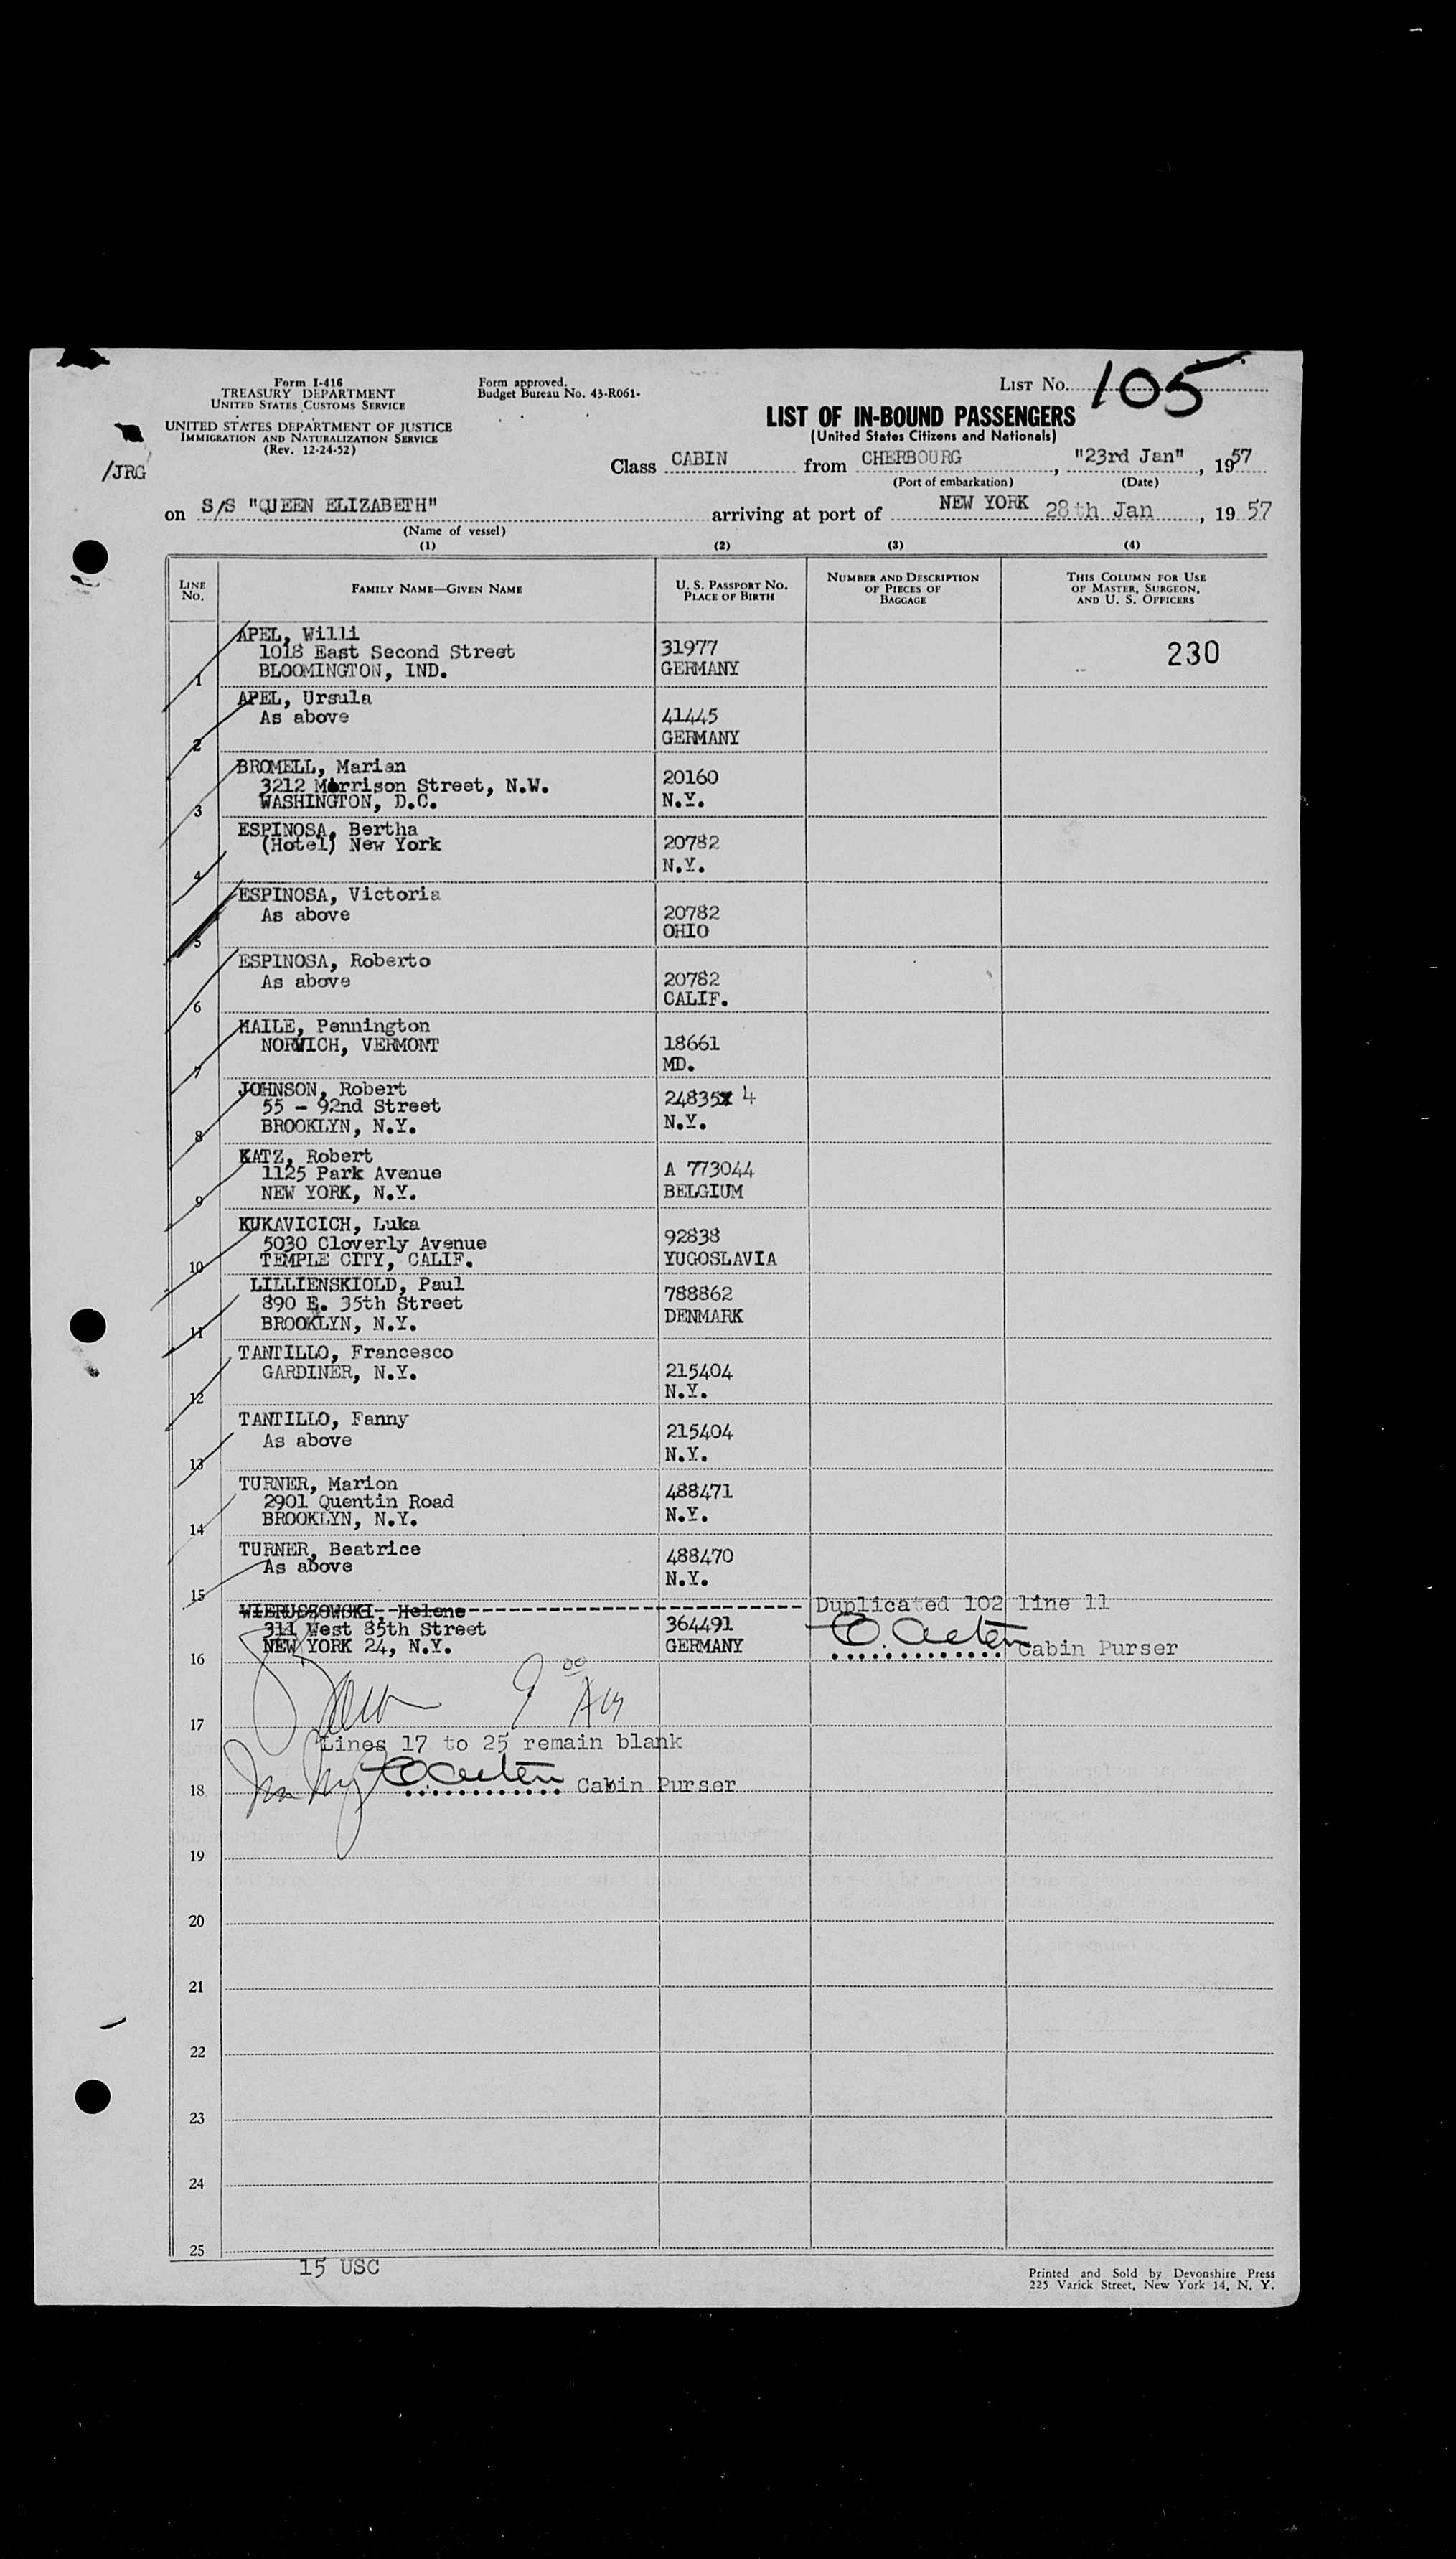 Form I-416
TREASURY DEPARTMENT
UNITED STATES CUSTOMS SERVICE
UNITED STATES DEPARTMENT OF JUSTICE
IMMIGRATION AND NATURALIZATION SERVICE
(Rev. 12-24-52)
/JRG
Form approved.
Budget Bureau No. 43-R061-
LIST NO. 105
LIST OF IN-BOUND PASSENGERS
(United States Citizens and Nationals)
Class CABIN from CHERBOURG, "23rd Jan", 1957
(Port of embarkation) (Date)
on S/S "QUEEN ELIZABETH" arriving at port of NEW YORK 28th Jan, 19 57
(Name of vessel)
(1) (2) (3) (4)
LINE NO. FAMILY NAME—GIVEN NAME U. S. PASSPORT NO. PLACE OF BIRTH NUMBER AND DESCRIPTION OF PIECES OF BAGGAGE THIS COLUMN FOR USE OF MASTER, SURGEON, AND U. S. OFFICERS
APEL, Willi
1018 East Second Street 31977 230
1 BLOOMINGTON, IND. GERMANY
APEL, Ursula
As above 41445
2 GERMANY
BROMELL, Marian
3212 Morrison Street, N.W. 20160
3 WASHINGTON, D.C. N.Y.
ESPINOSA, Bertha
(Hotel) New York 20782
4 N.Y.
ESPINOSA, Victoria
As above 20782
5 OHIO
ESPINOSA, Roberto
As above 20782
6 CALIF.
HAILE, Pennington
NORWICH, VERMONT 18661
7 MD.
JOHNSON, Robert
55 - 92nd Street 24835x 4
8 BROOKLYN, N.Y. N.Y.
KATZ, Robert
1125 Park Avenue A 773044
9 NEW YORK, N.Y. BELGIUM
KUKAVICICH, Luka
5030 Cloverly Avenue 92838
10 TEMPLE CITY, CALIF. YUGOSLAVIA
LILLIENSKIOLD, Paul
890 E. 35th Street 788862
11 BROOKLYN, N.Y. DENMARK
TANTILLO, Francesco
GARDINER, N.Y. 215404
12 N.Y.
TANTILLO, Fanny
As above 215404
13 N.Y.
TURNER, Marion
2901 Quentin Road 488471
14 BROOKLYN, N.Y. N.Y.
TURNER, Beatrice
As above 488470
15 N.Y.
WIERUSZOWSKI, Helene Duplicated 102 line 11
311 West 85th Street 364491
16 NEW YORK 24, N.Y. GERMANY Cabin Purser
9 00 AM
17
Lines 17 to 25 remain blank
18 Cabin Purser
19
20
21
22
23
24
25
15 USC
Printed and Sold by Devonshire Press
225 Varick Street, New York 14, N. Y.